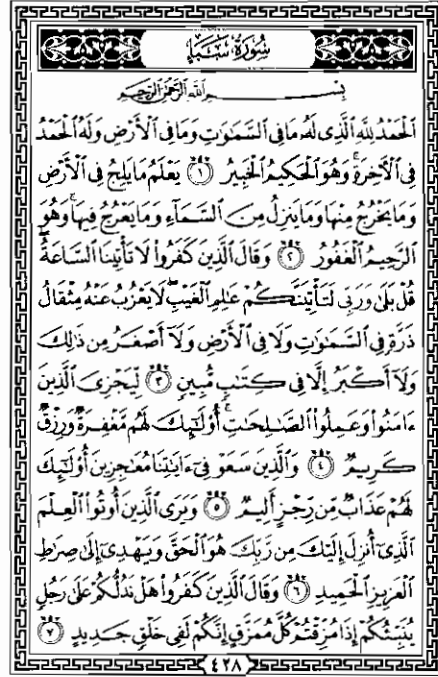 سُورَةُ سَبَإٍ
بِسْمِ ٱللَّهِ ٱلرَّحْمَٰنِ ٱلرَّحِيمِ
ٱلْحَمْدُ لِلَّهِ ٱلَّذِى لَهُۥ مَا فِى ٱلسَّمَٰوَٰتِ وَمَا فِى ٱلْأَرْضِ وَلَهُ ٱلْحَمْدُ
فِى ٱلْءَاخِرَةِ ۚ وَهُوَ ٱلْحَكِيمُ ٱلْخَبِيرُ ١ يَعْلَمُ مَا يَلِجُ فِى ٱلْأَرْضِ
وَمَا يَخْرُجُ مِنْهَا وَمَا يَنزِلُ مِنَ ٱلسَّمَآءِ وَمَا يَعْرُجُ فِيهَا ۚ وَهُوَ
ٱلرَّحِيمُ ٱلْغَفُورُ ٢ وَقَالَ ٱلَّذِينَ كَفَرُوا۟ لَا تَأْتِينَا ٱلسَّاعَةُ ۖ
قُلْ بَلَىٰ وَرَبِّى لَتَأْتِيَنَّكُمْ عَٰلِمِ ٱلْغَيْبِ ۖ لَا يَعْزُبُ عَنْهُ مِثْقَالُ
ذَرَّةٍ فِى ٱلسَّمَٰوَٰتِ وَلَا فِى ٱلْأَرْضِ وَلَآ أَصْغَرُ مِن ذَٰلِكَ
وَلَآ أَكْبَرُ إِلَّا فِى كِتَٰبٍ مُّبِينٍ ٣ لِّيَجْزِىَ ٱلَّذِينَ
ءَامَنُوا۟ وَعَمِلُوا۟ ٱلصَّٰلِحَٰتِ ۚ أُو۟لَٰٓئِكَ لَهُم مَّغْفِرَةٌ وَرِزْقٌ
كَرِيمٌ ٤ وَٱلَّذِينَ سَعَوْ فِىٓ ءَايَٰتِنَا مُعَٰجِزِينَ أُو۟لَٰٓئِكَ
لَهُمْ عَذَابٌ مِّن رِّجْزٍ أَلِيمٌ ٥ وَيَرَى ٱلَّذِينَ أُوتُوا۟ ٱلْعِلْمَ
ٱلَّذِىٓ أُنزِلَ إِلَيْكَ مِن رَّبِّكَ هُوَ ٱلْحَقَّ وَيَهْدِىٓ إِلَىٰ صِرَٰطِ
ٱلْعَزِيزِ ٱلْحَمِيدِ ٦ وَقَالَ ٱلَّذِينَ كَفَرُوا۟ هَلْ نَدُلُّكُمْ عَلَىٰ رَجُلٍ
يُنَبِّئُكُمْ إِذَا مُزِّقْتُمْ كُلَّ مُمَزَّقٍ إِنَّكُمْ لَفِى خَلْقٍ جَدِيدٍ ٧
٤٢٨